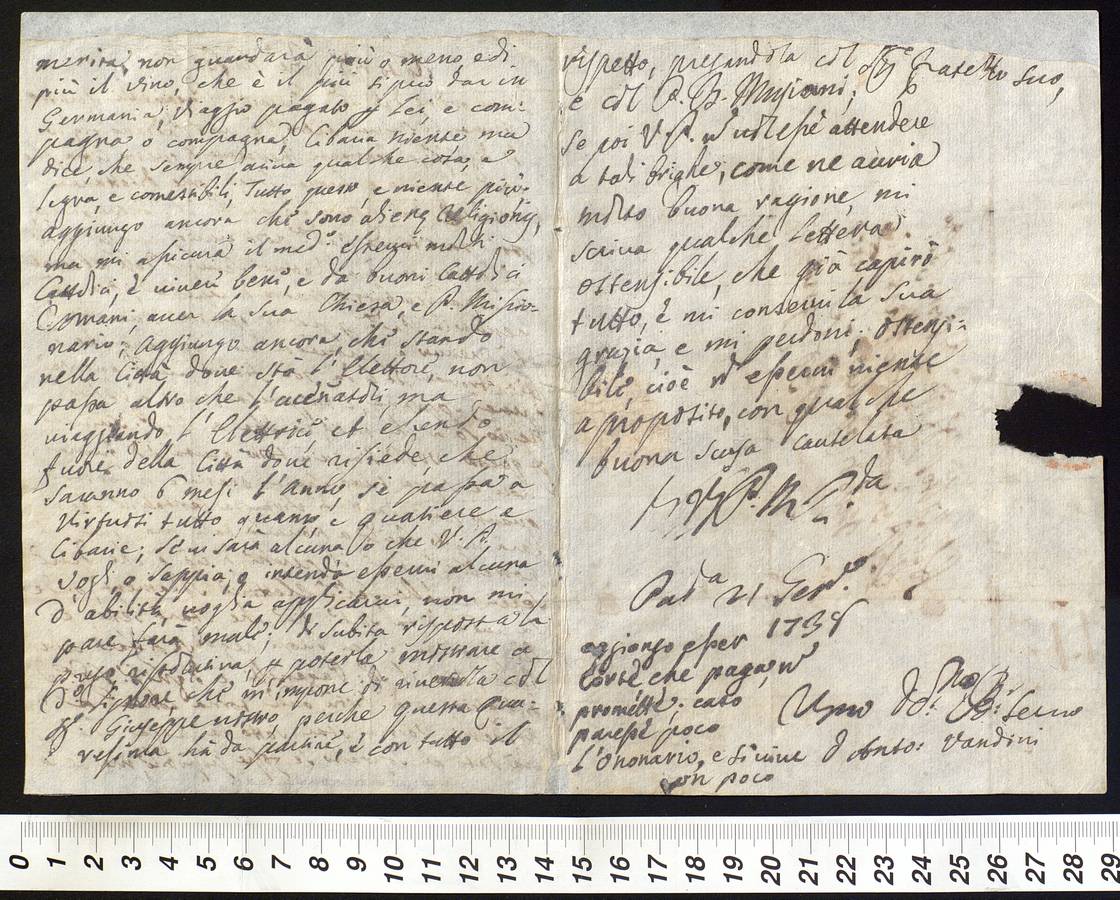 merita, non guardarà più o meno, e di
più il vino, che è il più si può dar in
Germania, Viaggio pagato p Lei, e com:
pagno o compagna, Cibaria niente, ma
dice che sempre aviva qualche cosa, a
legna, e comestibili, Tutto questo, e niente più:
aggiungo ancora che sono alieng Religionis,
ma mi assicura il med.º esservi molti
Cattolici, è vivervi bene, e da buoni Cattolici
Romani, aver la sua Chiesa, e P. Missio:
nario; Aggiungo ancora, che stando
nella Città dove stà l'Elettore, non
passa altro che l'accenatoli, ma
viaggiando l'Elettrice, et essendo
fuori della Città dove risiede, che
saranno 6 mesi l'Anno, se passa a
Virtuosi tutto quanto e quatiere e
Cibarie; se vi sarà alcuna o che V. P.
vogli o sappia, o intenda esservi alcuna
d'abilità, voglia applicarvi, non mi
pare farà male; di subita risposta la
prego risolutiva, p poterla mostrare a
d.º Signore, che m'impone di riverirla col
Giuseppe nostro, perche questa Qua:
resima hà da partire, è con tutto il
rispetto, pregandola col Sig.r Fratello suo,
e col P. B. Missioni;
se poi V. P. nõ volesse attendere
a tali brighe, come ne avria
molto buona ragione, mi
scriva qualche lettera
ostensibile, che già capirò
tutto, è mi conservi la sua
grazia, e mi perdoni. Ostensi:
bile, cioè nõ esservi niente
a proposito, con qualche
buona scusa cautelata
P. M.
Pad.a 21 Gen.o
1738
aggiongo esser
Corte che paga, nõ
promette; caso
paresse poco
l'Onorario, e si vive
con poco
Umo Serno
Anto: Vandini
0 1 2 3 4 5 6 7 8 9 10 11 12 13 14 15 16 17 18 19 20 21 22 23 24 25 26 27 28 29